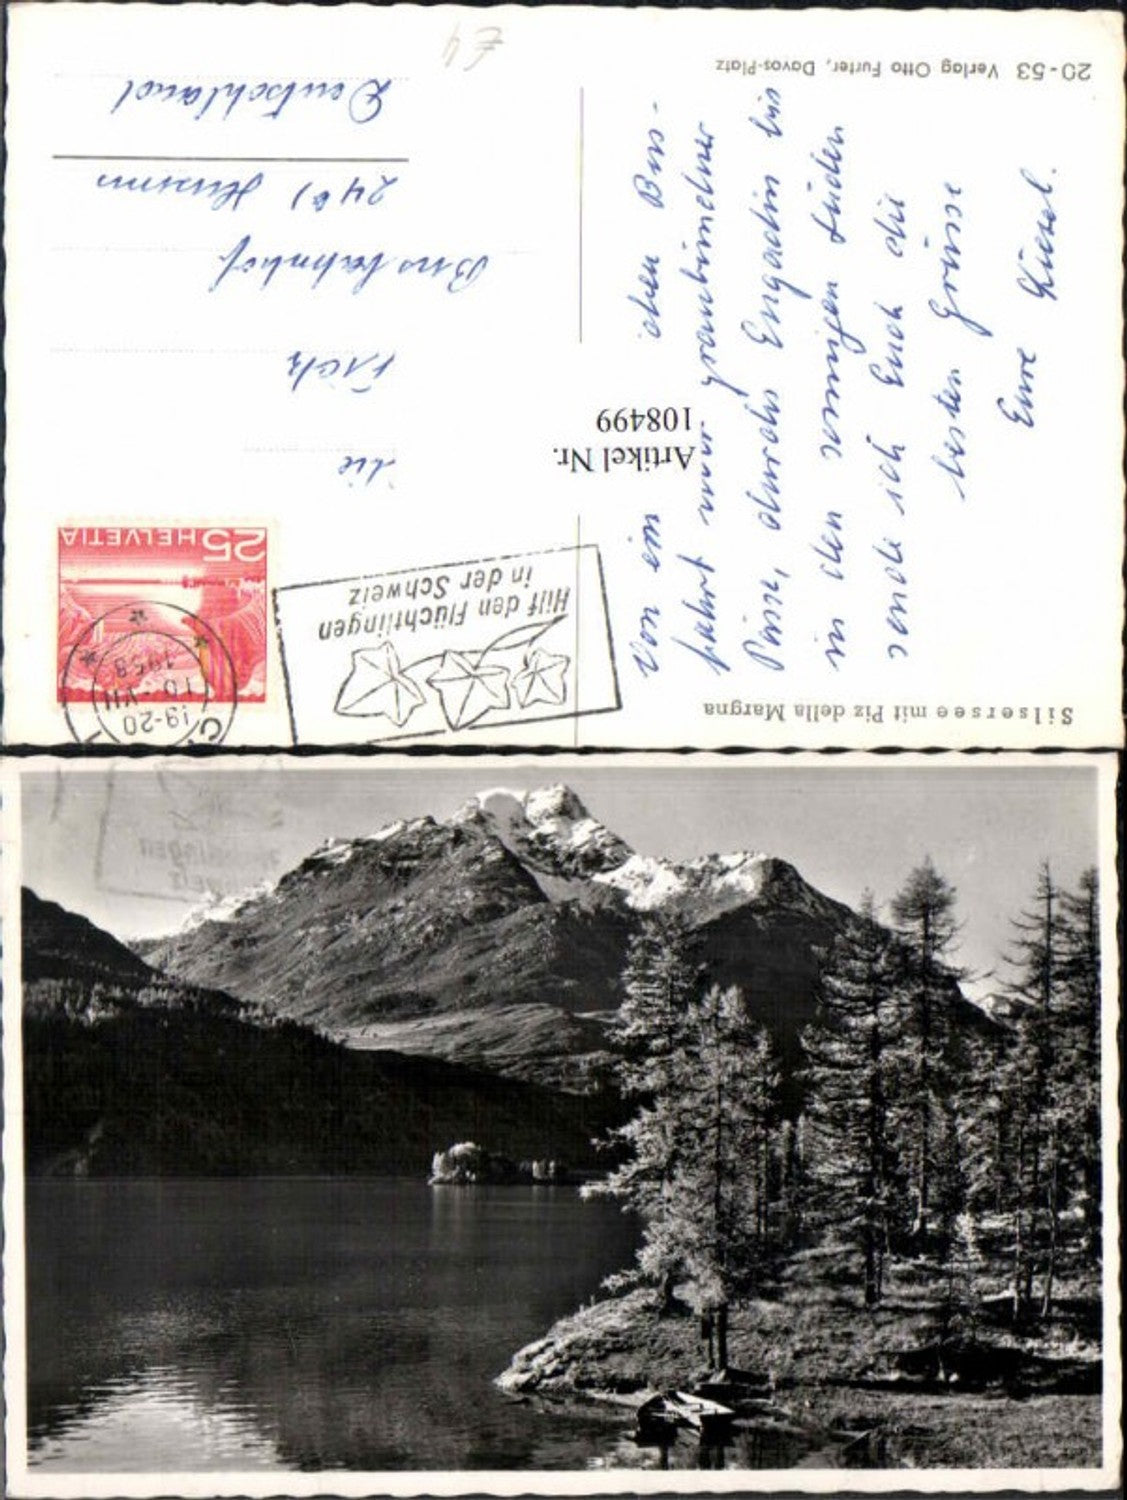 Silsersee mit Piz della Margna
Von ein oben Bus-
fahrt nur graubündner
Pässe, durchs Engadin bis
in den sonnigen Süden
sende ich Euch die
besten Grüsse
Eure
20-53 Verlag Otto Furter, Davos-Platz
Artikel Nr.
108499
Hilf den Flüchtlingen
in der Schweiz
19-20
10-VII
1958
25 HELVETIA
Busbahnhof
Husum
Deutschland
£4